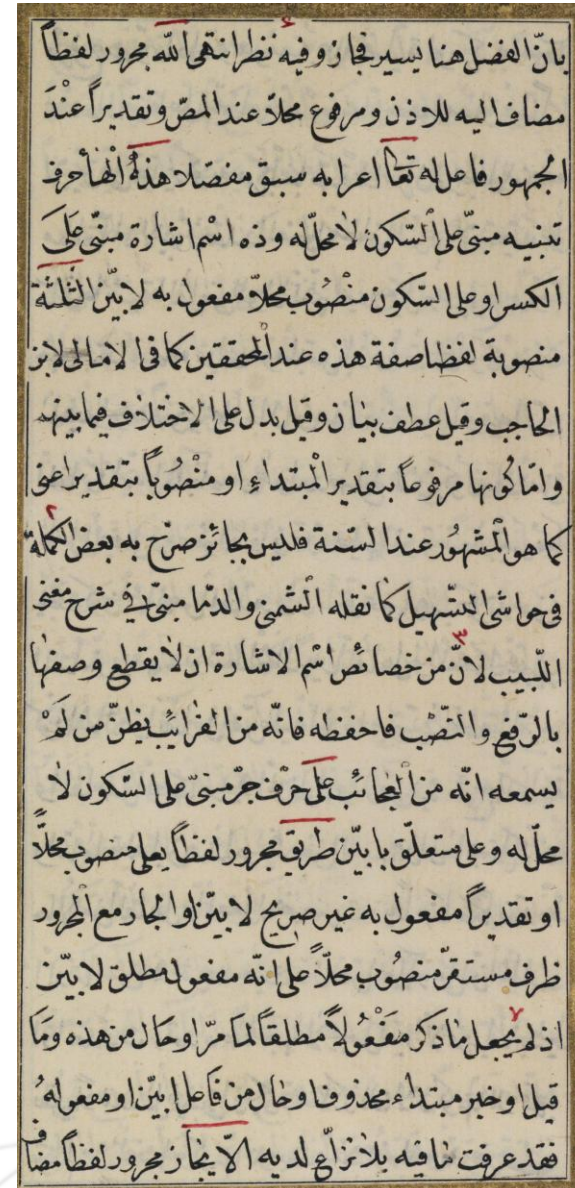 بانّ الفضل هنا يسير فجاز وفيه نظر انتهى اللّه مجرور لفظاً
مضاف اليه للاذن ومرفوع محلاّ عند المصّ وتقديراً عنْدَ
الجمهور فاعل له تعا اعرابه سبق مفصّلا هذهُ الْهٰأ حرف
تنبيه مبنىّ على السّكون لا محلّ له وذه اسْم اشارة مبنىّ عَلَى
الكسر او على السّكون منْصُوب محلاّ مفعول به لابيّن الثّلثة
منصوبة لفظا صفة هذه عند المحققين كما فى الامالى لابن
الحاجب وقيل عطف بيٰان وقيل بدل على الاختلاف فيما بينهم
وامّا كونها مرفوعاً بتقدير الْمبتداءِ او منْصُوباً بتقدير اعنى
كما هو الْمشهُور عند السّنة فليس بجائز صرّح به بعض الكملة
فى حواشى التسّهيل كما نقله الشّمنى والدّمامينىّ فى شرح مغنى
اللّبيب لانّ من خصائص اسْم الاشارة ان لا يقطع وصفها
بالرّفع والنّصْب فاحفظه فانّه من الغرائب يظنّ من لَمْ
يسمعه انّه من العجائب على حرْف جرّ مبنىّ على السّكون لا
محلّ له وعلى متعلّق بابيّن طريق مجرور لفظاً بعلى منصوب محلاًّ
او تقديراً مفعول به غير صريح لابيّن او الجار مع الْمجرور
ظرف مستقرّ منصُوب محلاًّ على انّه مفعول مطلق لابيّن
اذ لم يجعل مٰا ذكر مفْعُولاً مطلقاً لما مرّ او حال من هذه ومٰا
قيل او خبر مبتداء محذوف او حال من فاعل ابيّن او مفعولهُ
فقد عرفت مٰا فيه بلا نزاع لديه الاّيجٰاز مجرور لفظاً مضاف